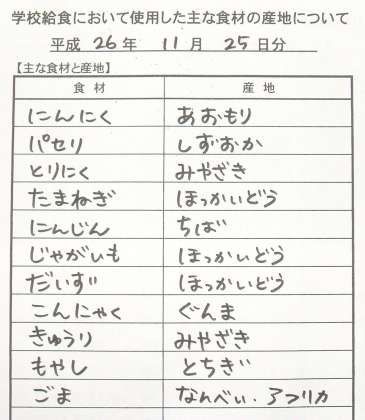 学校給食において使用した主な食材の産地について
平成 26 年 11 月 25 日分
【主な食材と産地】
食材 産地
にんにく あおもり
パセリ しずおか
とりにく みやざき
たまねぎ ほっかいどう
にんじん ちば
じゃがいも ほっかいどう
だいず ほっかいどう
こんにゃく ぐんま
きゅうり みやざき
もやし とちぎ
ごま なんべい・アフリカ